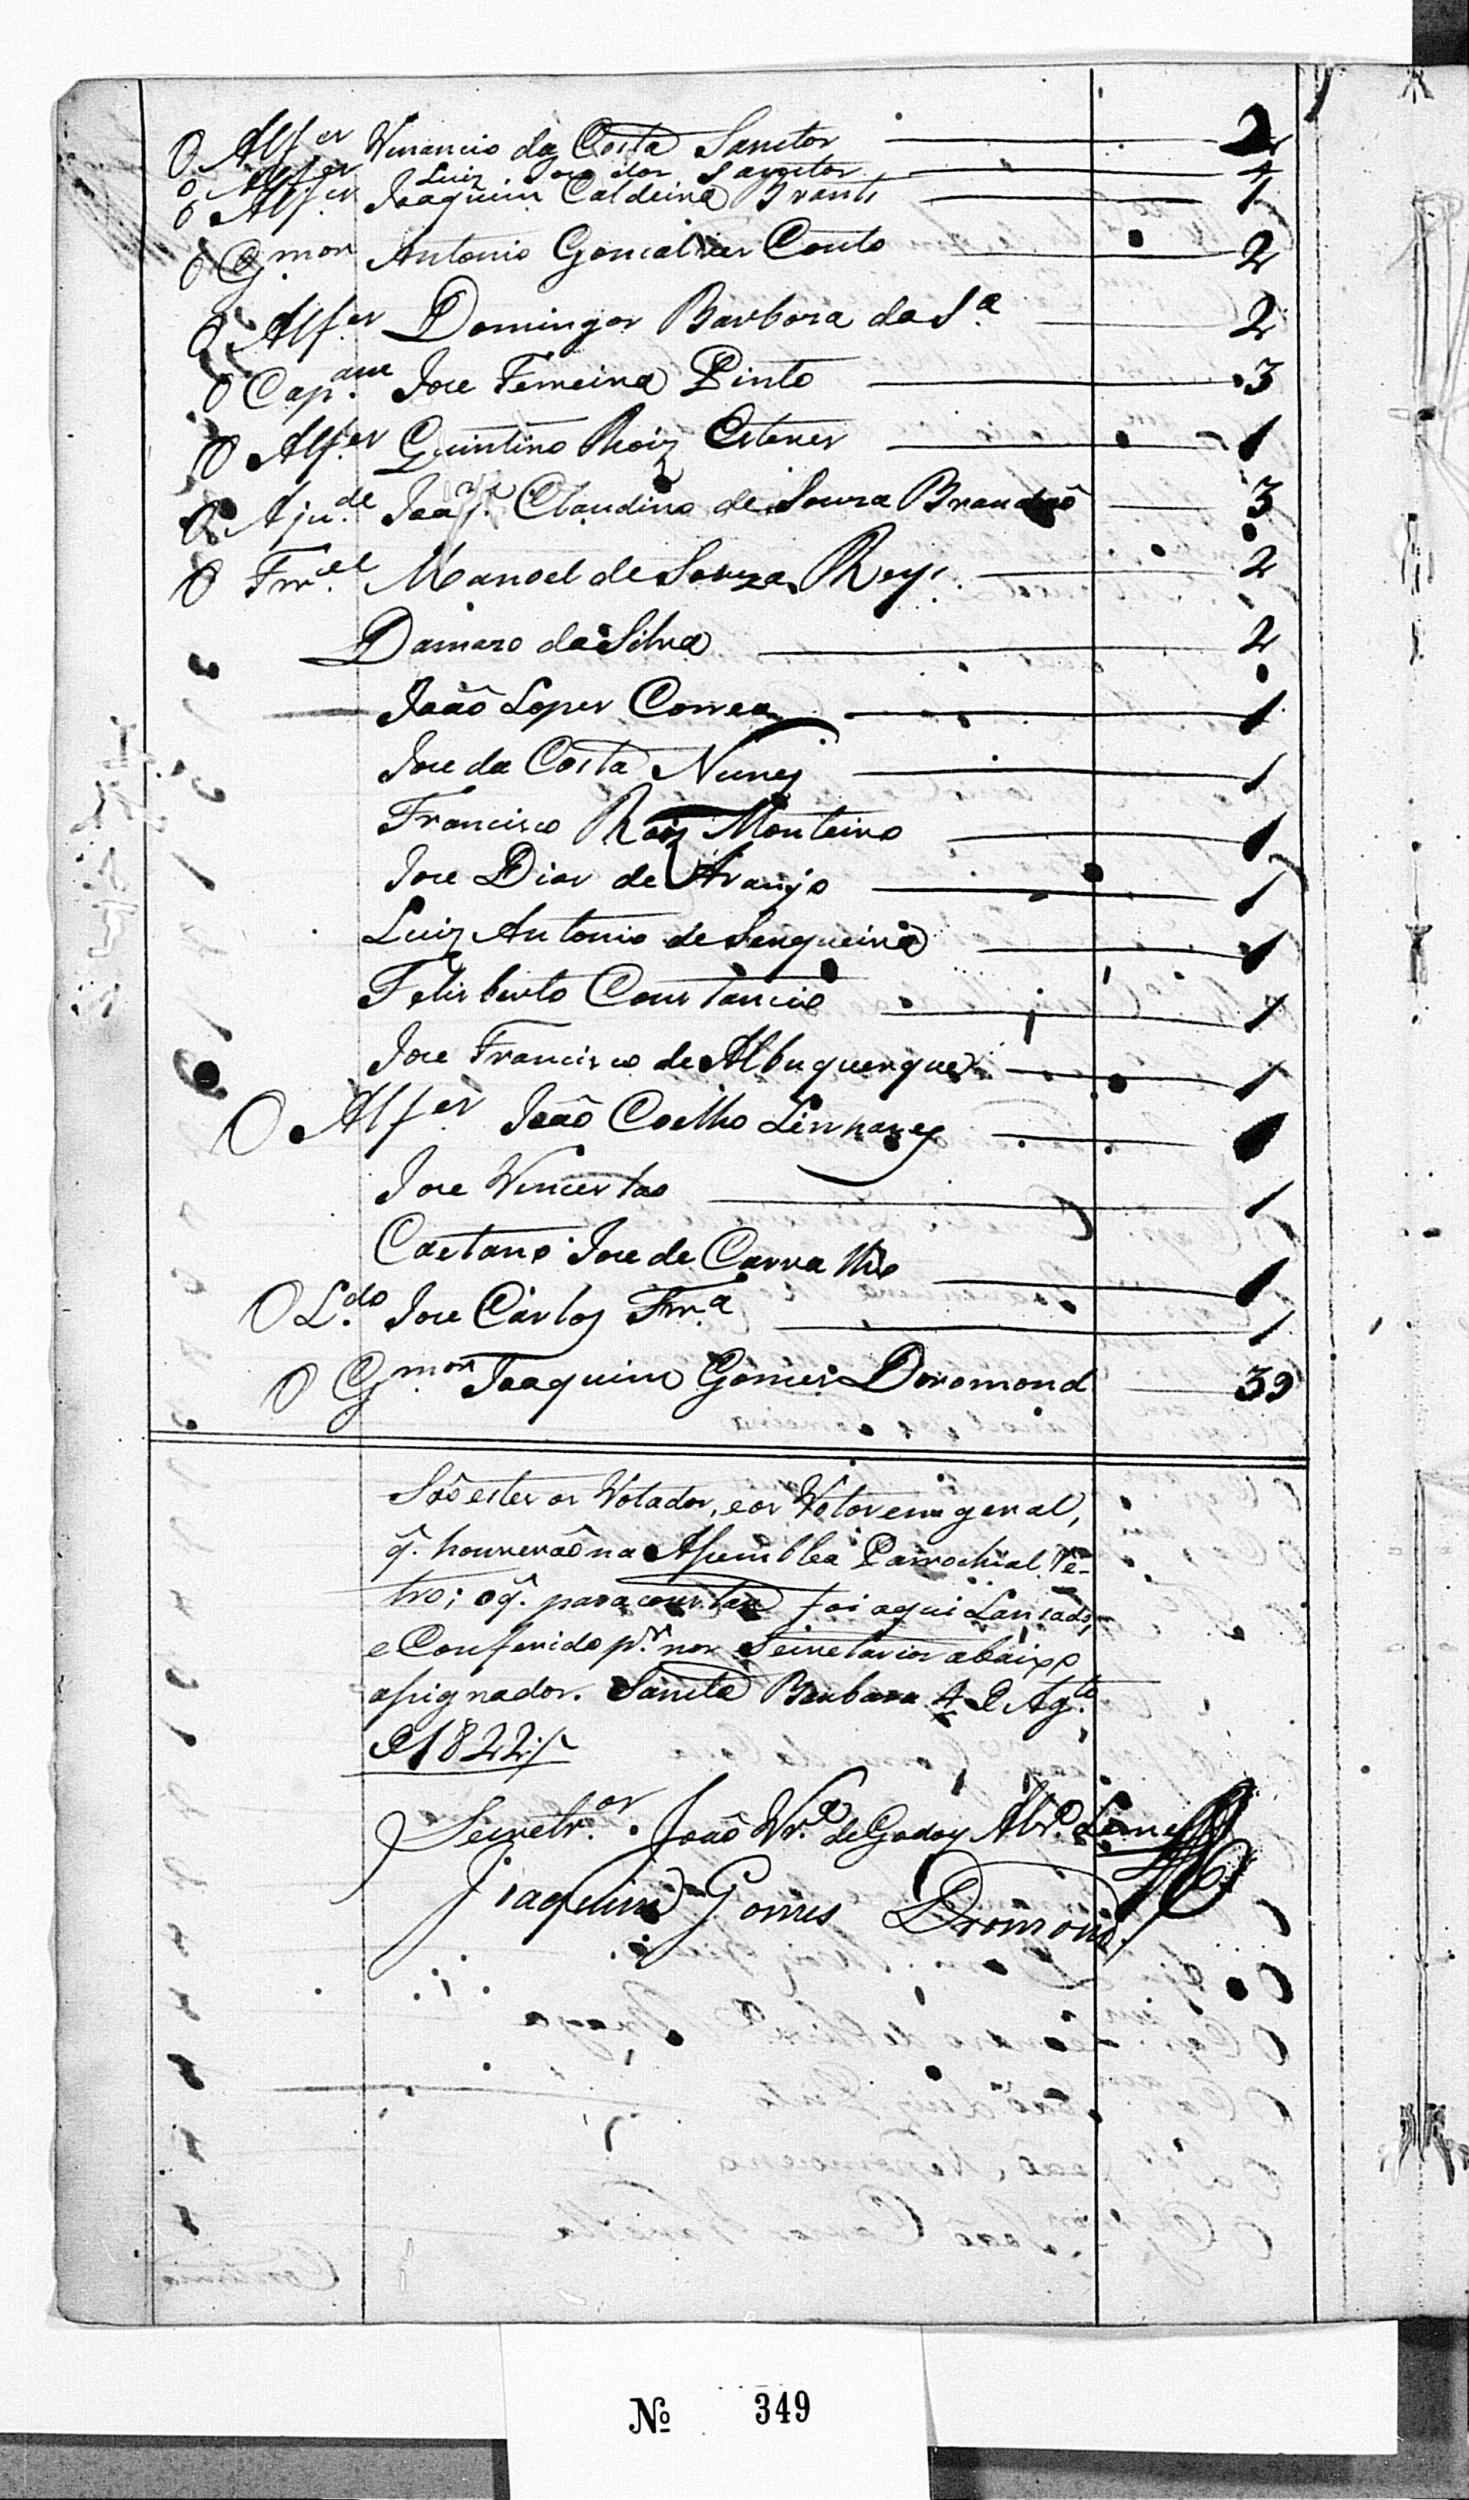 O Alf.es Venancio da Costa Santos 2
O Alf.es Luiz Joze dos Santos 4
O Alf.es Joaquim Caldeira Brant 1
O G.mor Antonio Goncalves Couto 2
O Alf.es Domingos Barbosa da S.a 2
O Cap.am Joze Ferreira Pinto 3
O Alf.es Quintino Roiz Esteves 1
O Aju.de Joaq.m Claudino de Souza Brandaõ 3
O Manoel de Souza Reys 2
Damazo da Silva 2
Joaõ Lopes Correa 1
Joze da Costa Nunes 1
Francisco Roiz Monteiro 1
Joze Dias de Araujo 1
Luiz Antonio de Serqueira 1
Felisberto Constancio 1
Joze Francisco de Albuquerque 1
O Alf.es Joaõ Coelho Linhares 1
Joze Vencesláo 1
Caetano Joze de Carvalho 1
O L.do Joze Carlos Frr.a 1
O G.mor Joaquim Gomes Doromond 39
Saõ estes os Votados, e os Votos em geral,
q̃. houveraõ na Assemblea Parrochial
o q̃. para constar foi aqui Lansado,
e Conferido p.r nos Secretarios abaixo
assignados. Sancta Barbara 4 d'Ag.to
d'1822
Secretr.os Joaõ Vr.a de Godoy Alv.o Leme
Joaquim Gomes Dromond
No 349